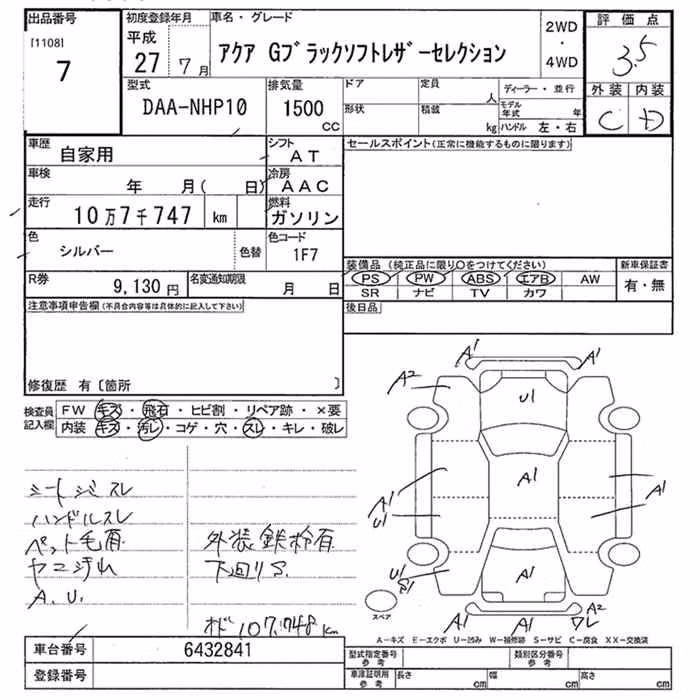 出品番号
[1108]
7
初度登録年月
平成
27 7月
車名・グレード
アクア Gブラックソフトレザーセレクション
2WD
・
4WD
評価点
3.5
外装 内装
C D
型式
DAA-NHP10
排気量
1500
CC
ドア 定員 人
形状 積載 kg
ディーラー・並行
モデル年式 年
ハンドル 左・右
車歴
自家用
シフト
AT
車検
年 月( 日)
冷房
AAC
走行
10万7千747 km
燃料
ガソリン
色
シルバー
色替
色コード
1F7
R券
9,130円
名変通知期限
月 日
セールスポイント(正常に機能するものに限ります)
装備品 (純正品に限り○をつけてください)
PS PW ABS エアB AW
SR ナビ TV カワ
新車保証書
有・無
後日品
注意事項申告欄(不具合内容等は具体的に記入して下さい)
修復歴 有〔箇所 〕
検査員記入欄
FW キズ・飛石・ヒビ割・リペア跡・×要
内装 キズ・汚レ・コゲ・穴・スレ・キレ・破レ
シートシミスレ
ハンドルスレ
ペット毛有
ヤニ汚れ
A.U.
外装鉄粉有
下回りS.
オド107,748km
A1 A1
A2
U1
A1
A1
U1
A1
U1
S1
A1
A1 A1 A2
ワレ
スペア
A―キズ E―エクボ U―凹み W―補修跡 S―サビ C―腐食 XX―交換済
車台番号
6432841
登録番号
型式指定番号
参考
類別区分番号
参考
車庫証明用
参考
長さ cm 幅 cm 高さ cm